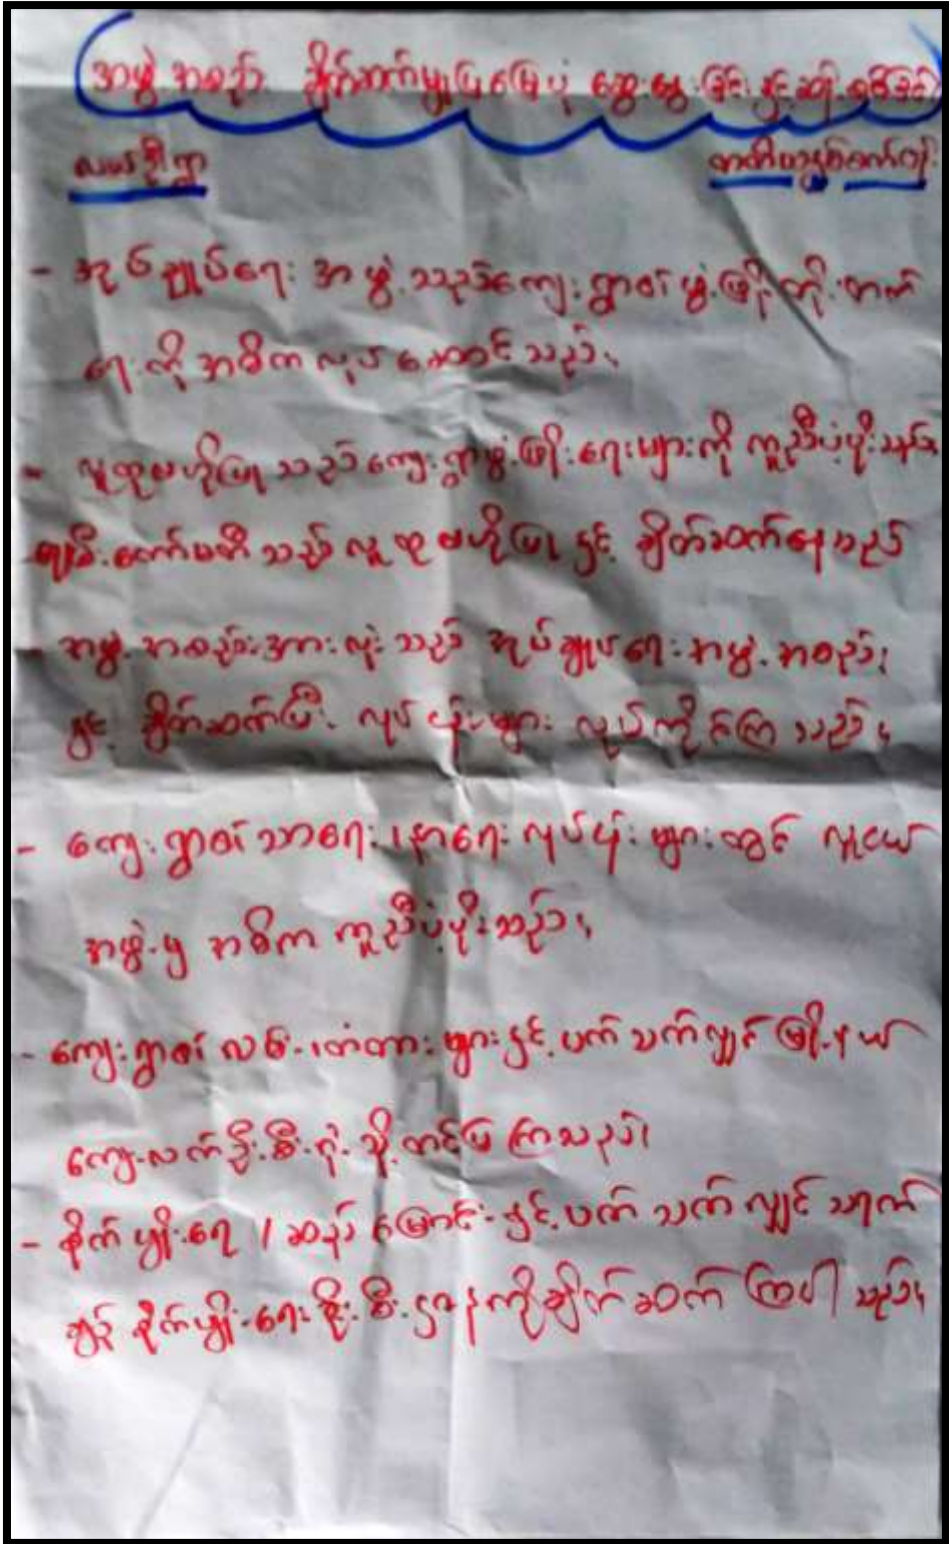 အဖွဲ့အစည်း ချိတ်ဆက်မှုပြမြေပုံ ဆွေးနွေးခြင်းနှင့်ဆန်းစစ်ခြင်း
လယ်ဦးရွာ
- အုပ်ချုပ်ရေး အဖွဲ့သည်ကျေးရွာဖွံ့ဖြိုးတိုးတက်
ရေးကိုအဓိကလုပ်ဆောင်သည်။
- လူထုဗဟိုပြုသည်ကျေးရွာဖွံ့ဖြိုးရေးများကို ကူညီပံ့ပိုးသည်။
ကော်မတီသည် လူထုဗဟိုပြုနှင့် ချိတ်ဆက်နေသည်
- အဖွဲ့အစည်းအားလုံးသည် အုပ်ချုပ်ရေးအဖွဲ့အစည်း
နှင့် ချိတ်ဆက်ပြီး လုပ်ငန်းများ လုပ်ကိုင်ကြသည်။
- ကျေးရွာ၏သာရေး၊နာရေးလုပ်ငန်းများတွင် လူငယ်
အဖွဲ့မှ အဓိက ကူညီပံ့ပိုးသည်။
- ကျေးရွာ၏လမ်း၊တံတားများနှင့်ပတ်သက်လျှင် မြို့နယ်
ကျေးလက်ဦးစီးရုံးသို့တင်ပြကြသည်။
- စိုက်ပျိုးရေး/ဆည်မြောင်းနှင့်ပတ်သက်လျှင် သက်
စိုက်ပျိုးရေးဦးစီးဌာနကိုချိတ်ဆက်ကြပါသည်။